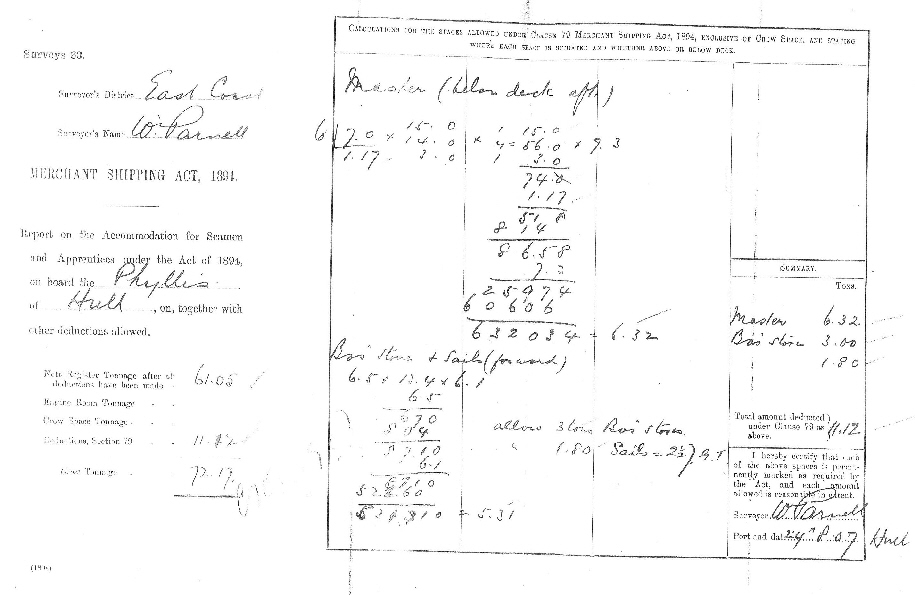 Surveys 23.
Surveyor's District East Coast
Surveyor's Name W. Parnell
MERCHANT SHIPPING ACT, 1894.
Report on the Accommodation for Seamen
and Apprentices under the Act of 1894,
on board the Phyllis
of Hull, on, together with
other deductions allowed.
Register Tonnage after all
deductions have been made 61.05
Engine Room Tonnage
Crow Space Tonnage
Section 79
Gross Tonnage
CALCULATIONS FOR THE SPACES ALLOWED UNDER CLAUSE 79 MERCHANT SHIPPING ACT, 1894, EXCLUSIVE OF CREW SPACE, AND STATING
WHERE EACH SPACE IS SITUATED AND WHETHER ABOVE OR BELOW DECK.
Master (below deck aft)
15.0 1 15.0
6 7.0 × 14.0 × 4 = 56.0 × 7.3
1.17 3.0 1 3.0
74.0
1.17
518
814
8658
7.3
25974
60606
632034 = 6.32
Bos' store & Sails (forward)
6.5 × 13.4 × 6.1
65
allow 3 tons Bos' stores
" 1.80 Sails = 2½ % G.T
6.1
= 5.31
SUMMARY.
Tons.
Master 6.32
Bos' store 3.00
1.80
Total amount deducted
under Clause 79 as 11.12
above.
I hereby certify that each
of the above spaces is perma-
nently marked as required by
the Act, and each amount
allowed is reasonable in extent.
Surveyor W Parnell
Port and date 24" 8.07 Hull